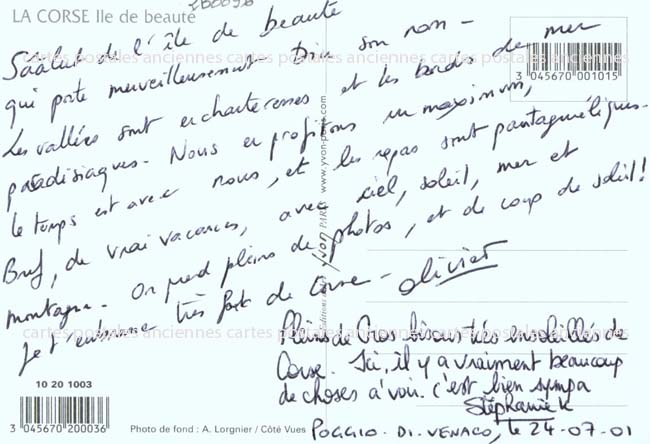 LA CORSE Ile de beauté
Saalut de l'île de beauté
qui porte merveilleusement bien son nom -
Les vallées sont enchanteresses et les bords de mer
paradisiaques - Nous en profitons un maximum,
le temps est avec nous, et les repas sont pantagruéliques -
Bref, de vrai vacances, avec ciel, soleil, mer et
montagne - On prend pleins de photos, et de coup de soleil !
Je t'embrasse très fort de Corse - Olivier
Pleins de Gros bisous très ensoleillés de
Corse. Ici, il y a vraiment beaucoup
de choses à voir. c'est bien sympa
Stéphanie K
POGGIO - DI - VENACO, le 24-07-01
3 045670 001015
www.yvon-paris.com
yvon PARIS
cartes postales anciennes cartes postales anciennes cartes postales anciennes
cartes postales anciennes cartes postales anciennes cartes postales anciennes
10 20 1003
3 045670 200036
Photo de fond : A. Lorgnier / Côté Vues